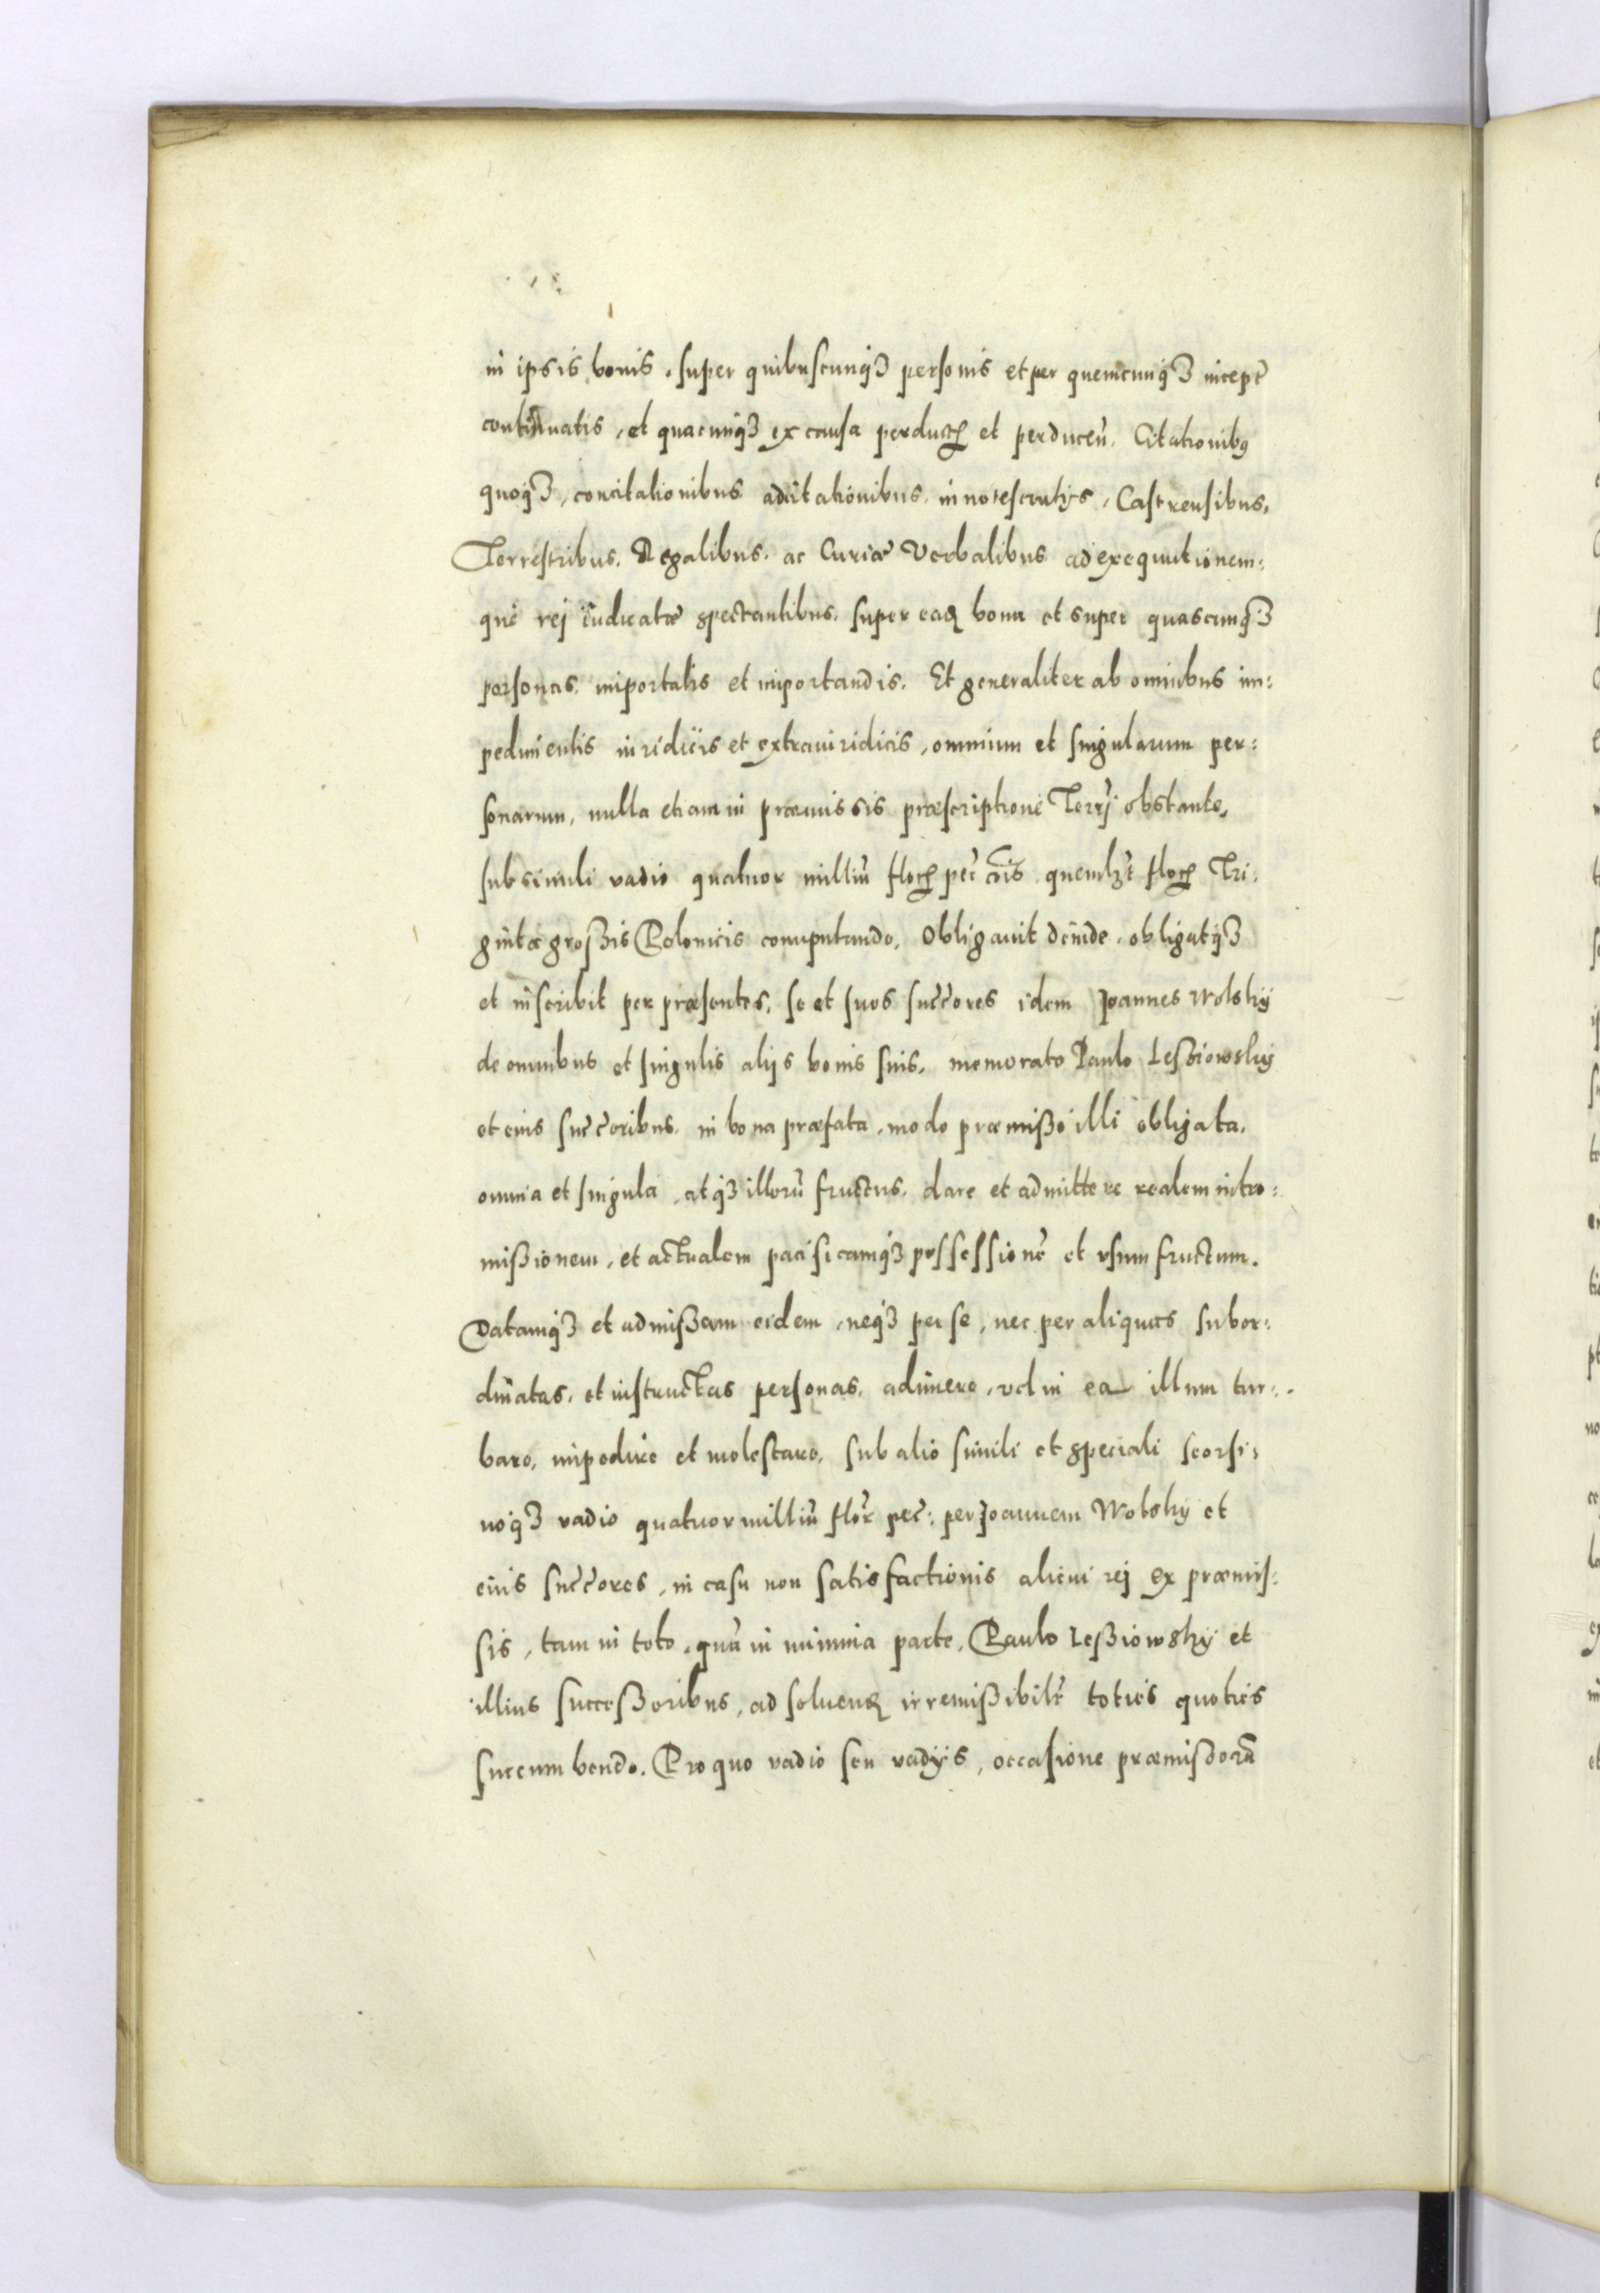 in ipsis bonis, super quibuscunq₃ personis et per quemcunq₃ incept̃
continuatis, et quacunq₃ ex causa perduct̃ et perduceñ. Citationibꝰ
quoq₃, concitationibus adcitationibus, innotescentijs, Castrensibus,
Terrestribus, Regalibus, ac Curiæ Verbalibus ad exequutionem:
que rej iudicatæ spectantibus, super eaꝝ bona et super quascunq₃
personas, importatis et importandis. Et generaliter ab omnibus im:
pedimentis iuridicis et extraiuridicis, omnium et singularum per:
sonarum, nulla etiam in præmissis præscriptione Terrj obstante,
sub simili vadio quatuor milliũ floꝝ pec̃ cõis quemlꝫt floꝝ Tri:
ginta großis Polonicis computando. Obligavit deinde, obligatq₃
et inscribit per præsentes, se et suos succ̃ores idem Joannes Wolsky
de omnibus et singulis alijs bonis suis, memorato Paulo Leßiowsky
et eius succ̃oribus, in bona præfata, modo præmißo illi obligata,
omnia et singula, atq₃ illorũ fructus, dare et admittere realem intro:
mißionem, et actualem pacificamq₃ possessionẽ et vsumfructum.
Datamq₃ et admißam eidem, neq₃ per se, nec per aliquas subor:
dinatas, et instructas personas, adimere, vel in ea illum tur:
bare, impedire et molestare, sub alio simili et speciali seorsi:
uoq₃ vadio quatuor milliũ flor̃ pec̃: per Joannem Wolsky et
eius succ̃ores, in casu non satisfactionis alicui rej ex præmis:
sis, tam in toto, quã in minima parte, Paulo Leßiowsky et
illius succeßoribus, ad soluenꝝ irremißibilr̃ toties quoties
succumbendo. Pro quo vadio seu vadijs, occasione præmissorũ